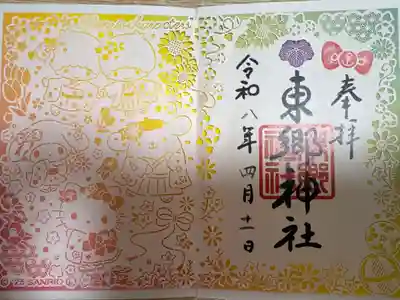 奉拝
東郷神社
令和八年四月十一日
©'25 SANRIO